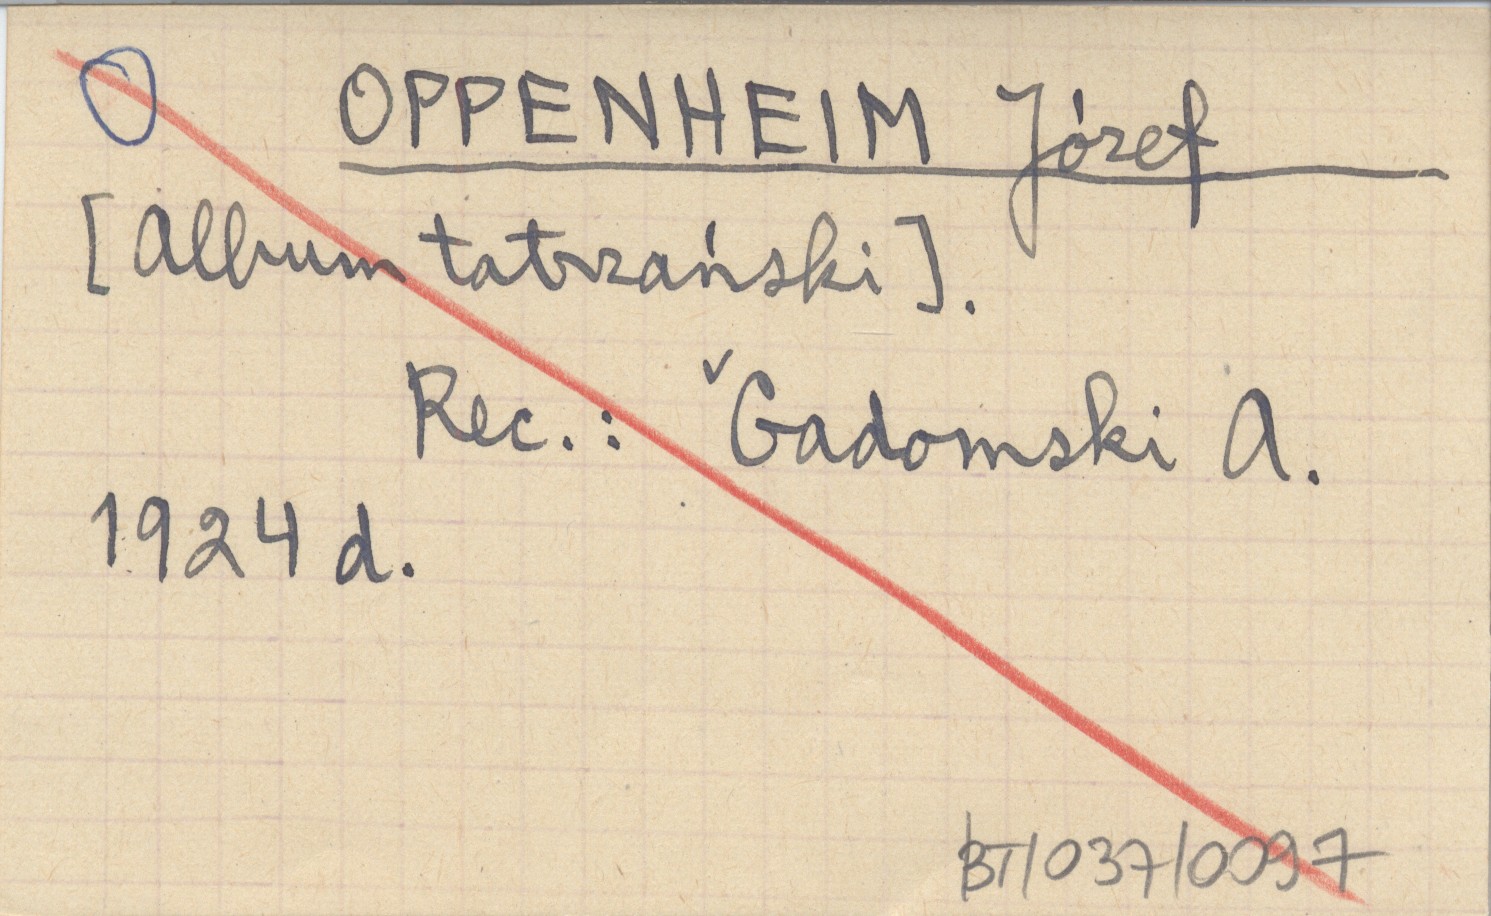 O OPPENHEIM Józef
[Album tatrzański].
Rec.: ˇGadomski A.
1924 d.
BT/037/0097